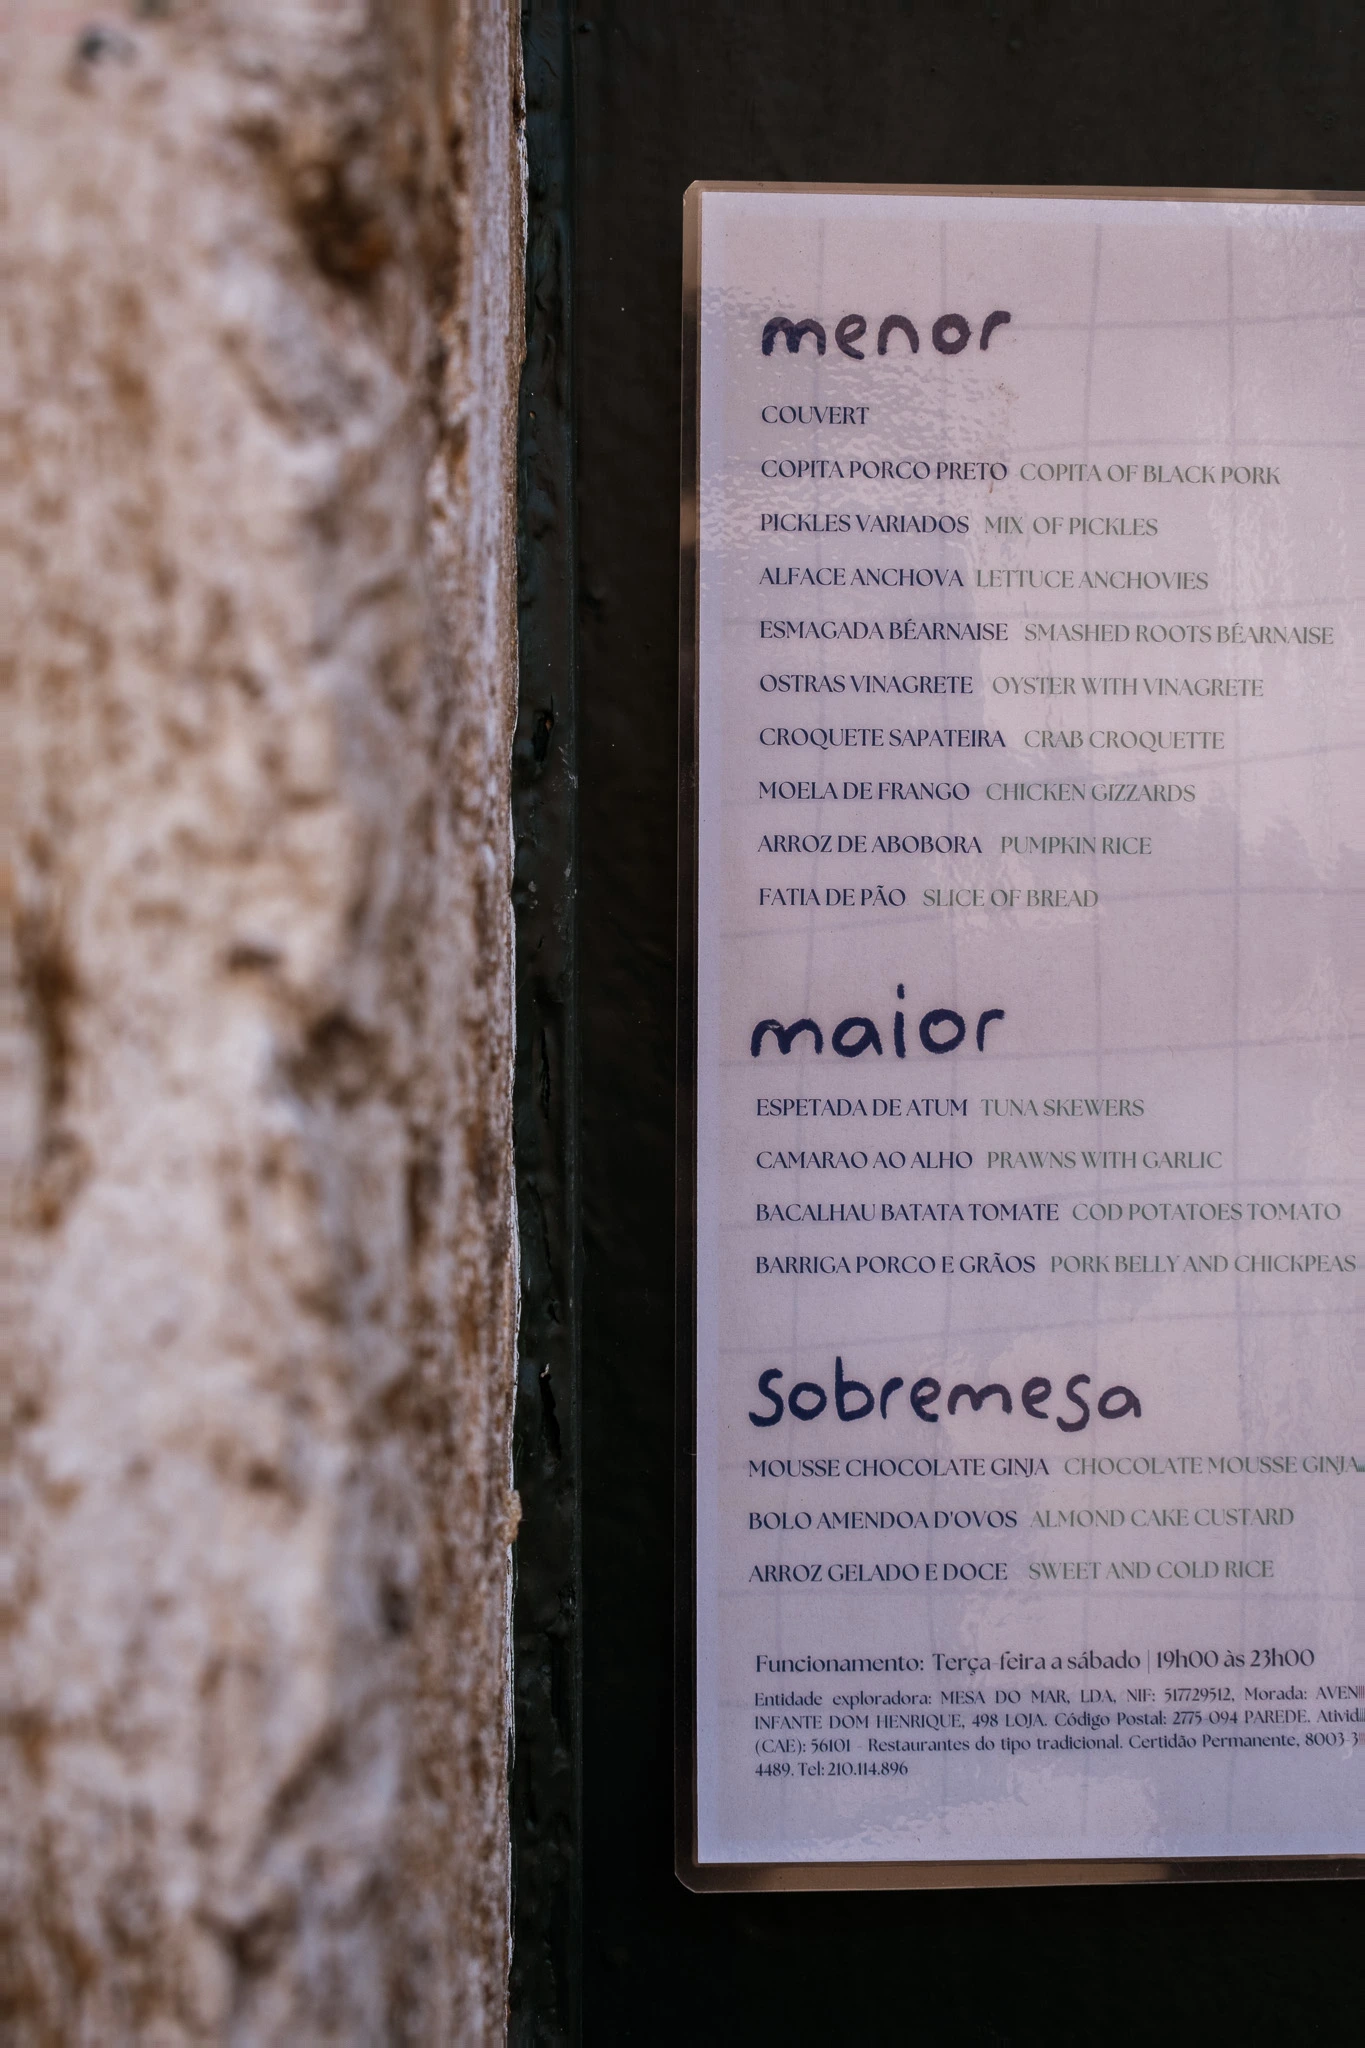 menor
COUVERT
COPITA PORCO PRETO COPITA OF BLACK PORK
PICKLES VARIADOS MIX OF PICKLES
ALFACE ANCHOVA LETTUCE ANCHOVIES
ESMAGADA BÉARNAISE SMASHED ROOTS BÉARNAISE
OSTRAS VINAGRETE OYSTER WITH VINAGRETE
CROQUETE SAPATEIRA CRAB CROQUETTE
MOELA DE FRANGO CHICKEN GIZZARDS
ARROZ DE ABOBORA PUMPKIN RICE
FATIA DE PÃO SLICE OF BREAD
maior
ESPETADA DE ATUM TUNA SKEWERS
CAMARAO AO ALHO PRAWNS WITH GARLIC
BACALHAU BATATA TOMATE COD POTATOES TOMATO
BARRIGA PORCO E GRÃOS PORK BELLY AND CHICKPEAS
sobremesa
MOUSSE CHOCOLATE GINJA CHOCOLATE MOUSSE GINJA
BOLO AMENDOA D'OVOS ALMOND CAKE CUSTARD
ARROZ GELADO E DOCE SWEET AND COLD RICE
Funcionamento: Terça-feira a sábado | 19h00 às 23h00
Entidade exploradora: MESA DO MAR, LDA, NIF: 517729512, Morada: AVEN
INFANTE DOM HENRIQUE, 498 LOJA. Código Postal: 2775-094 PAREDE. Ativid
(CAE): 56101 - Restaurantes do tipo tradicional. Certidão Permanente, 8003-3
4489. Tel: 210.114.896